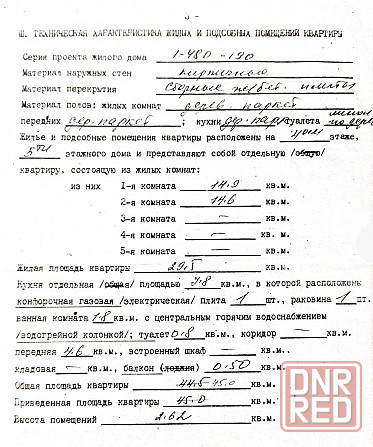 - 3 -
Ш. ТЕХНИЧЕСКАЯ ХАРАКТЕРИСТИКА ЖИЛЫХ И ПОДСОБНЫХ ПОМЕЩЕНИЙ КВАРТИРЫ
Серия проекта жилого дома 1-480-190
Материал наружных стен кирпичные
Материал перекрытия сборные железоб. плиты
Материал полов: жилых комнат дерев. паркет
передних дер. паркет ; кухни дер. парк туалета
Жилье и подсобные помещения квартиры расположены на этаже,
5ти этажного дома и представляют собой отдельную /общую/
квартиру, состоящую из жилых комнат:
из них I-я комната 14.9 кв.м.
2-я комната 14.6 кв.м.
3-я комната — кв.м.
4-я комната — кв.м.
5-я комната — кв.м.
Жилая площадь квартиры 29.5 кв.м.
Кухня отдельная /общая/ площадью 7.8 кв.м., в которой расположены
конфорочная газовая /электрическая/ плита 1 шт., раковина 1 шт.
ванная комната 1.8 кв.м. с центральным горячим водоснабжением
/водогрейной колонкой/; туалет 0.8 кв.м., коридор — кв.м.
передняя 4.6 кв.м., встроенный шкаф — кв.м.
кладовая — кв.м., балкон (лоджия) 0.50 кв.м.
Общая площадь квартиры 44.5 45.0 кв.м.
Приведенная площадь квартиры 45.0 кв.м.
Высота помещений 2.62 кв.м.
DNR
RED